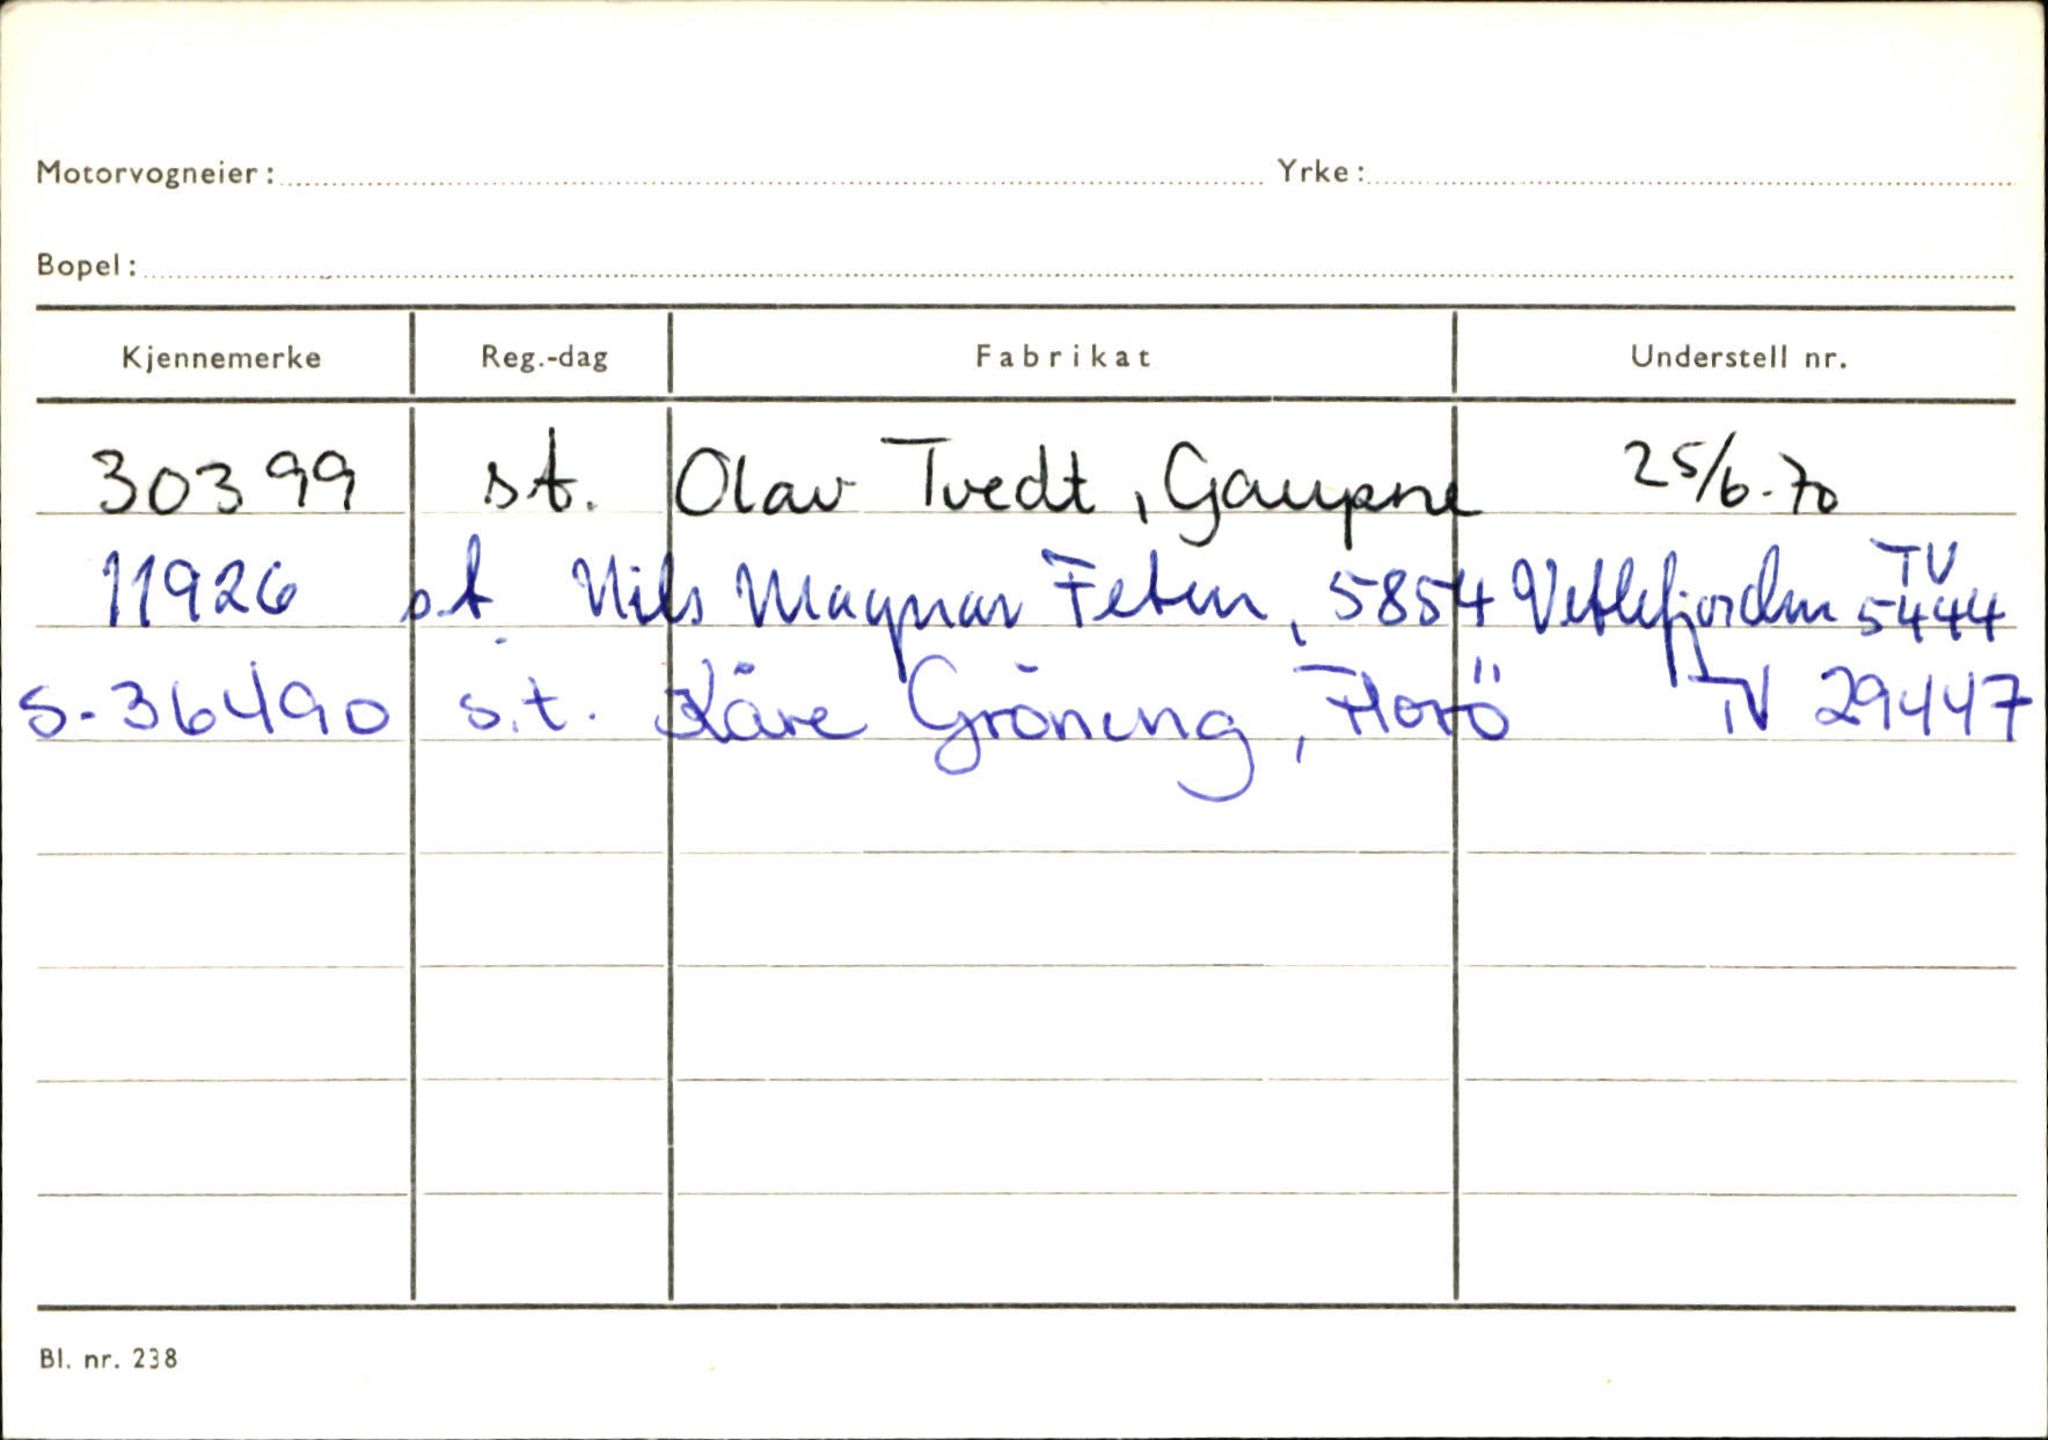 Motorvogneier: Yrke:
Bopel:
Kjennemerke Reg.-dag Fabrikat Understell nr.
30399 st. Olav Tvedt, Gaupne 25/6-70
11926 s.t. Nils Magnar Feten, 5854 Vetlefjorden TV 5444
S-36490 s.t. Kåre Gröning, Florö TV 29447
Bl. nr. 238